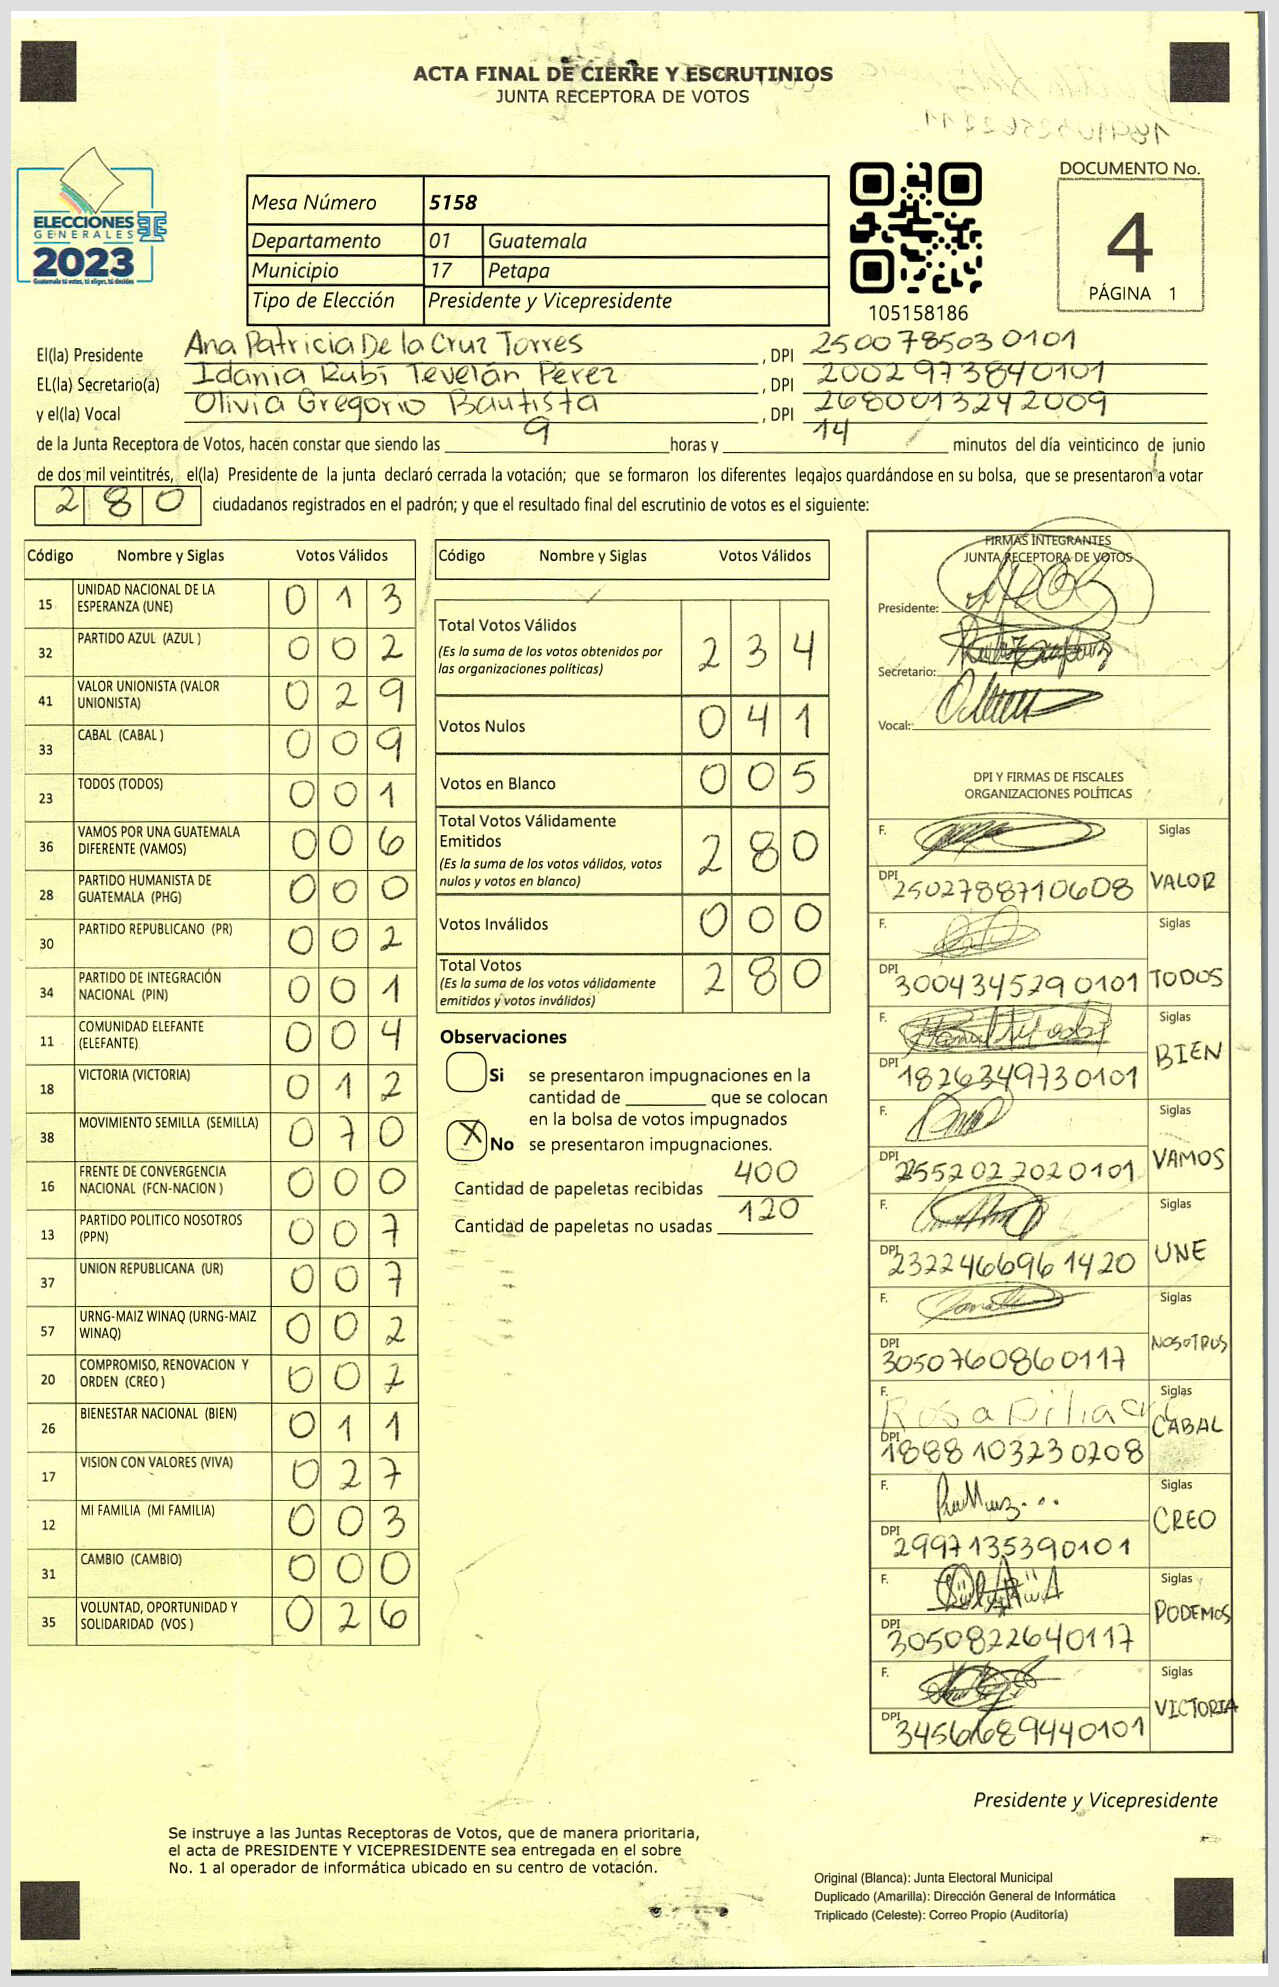 ACTA FINAL DE CIERRE Y ESCRUTINIOS
JUNTA RECEPTORA DE VOTOS
ELECCIONES
GENERALES
2023
Guatemala tú votas, tú eliges, tú decides
Mesa Número 5158
Departamento 01 Guatemala
Municipio 17 Petapa
Tipo de Elección Presidente y Vicepresidente
105158186
DOCUMENTO No.
4
PÁGINA 1
El(la) Presidente Ana Patricia De la Cruz Torres , DPI 2500785030101
EL(la) Secretario(a) Idania Rubí Tevelán Pérez , DPI 2002973840101
y el(la) Vocal Olivia Gregorio Bautista , DPI 2680013242009
de la Junta Receptora de Votos, hacen constar que siendo las 9 horas y 14 minutos del día veinticinco de junio
de dos mil veintitrés, el(la) Presidente de la junta declaró cerrada la votación; que se formaron los diferentes legajos guardándose en su bolsa, que se presentaron a votar
280 ciudadanos registrados en el padrón; y que el resultado final del escrutinio de votos es el siguiente:
Código Nombre y Siglas Votos Válidos
15 UNIDAD NACIONAL DE LA ESPERANZA (UNE) 013
32 PARTIDO AZUL (AZUL ) 002
41 VALOR UNIONISTA (VALOR UNIONISTA) 029
33 CABAL (CABAL ) 009
23 TODOS (TODOS) 001
36 VAMOS POR UNA GUATEMALA DIFERENTE (VAMOS) 006
28 PARTIDO HUMANISTA DE GUATEMALA (PHG) 000
30 PARTIDO REPUBLICANO (PR) 002
34 PARTIDO DE INTEGRACIÓN NACIONAL (PIN) 001
11 COMUNIDAD ELEFANTE (ELEFANTE) 004
18 VICTORIA (VICTORIA) 012
38 MOVIMIENTO SEMILLA (SEMILLA) 070
16 FRENTE DE CONVERGENCIA NACIONAL (FCN-NACION ) 000
13 PARTIDO POLITICO NOSOTROS (PPN) 007
37 UNION REPUBLICANA (UR) 007
57 URNG-MAIZ WINAQ (URNG-MAIZ WINAQ) 002
20 COMPROMISO, RENOVACION Y ORDEN (CREO ) 002
26 BIENESTAR NACIONAL (BIEN) 011
17 VISION CON VALORES (VIVA) 027
12 MI FAMILIA (MI FAMILIA) 003
31 CAMBIO (CAMBIO) 000
35 VOLUNTAD, OPORTUNIDAD Y SOLIDARIDAD (VOS ) 026
Código Nombre y Siglas Votos Válidos
Total Votos Válidos 234
(Es la suma de los votos obtenidos por
las organizaciones políticas)
Votos Nulos 041
Votos en Blanco 005
Total Votos Válidamente
Emitidos 280
(Es la suma de los votos válidos, votos
nulos y votos en blanco)
Votos Inválidos 000
Total Votos 280
(Es la suma de los votos válidamente
emitidos y votos inválidos)
Observaciones
Si se presentaron impugnaciones en la
cantidad de ________ que se colocan
en la bolsa de votos impugnados
X No se presentaron impugnaciones.
Cantidad de papeletas recibidas 400
Cantidad de papeletas no usadas 120
FIRMAS INTEGRANTES
JUNTA RECEPTORA DE VOTOS
Presidente:
Secretario:
Vocal:
DPI Y FIRMAS DE FISCALES
ORGANIZACIONES POLÍTICAS
F. Siglas
DPI 2502788710608 VALOR
F. Siglas
DPI 3004345290101 TODOS
F. Siglas
DPI 1826349730101 BIEN
F. Siglas
DPI 2552022020101 VAMOS
F. Siglas
DPI 2322466961420 UNE
F. Siglas
DPI 3050760860117 NOSOTROS
F. Rosa Dilia Siglas
DPI 1888103230208 CABAL
F. Siglas
DPI 2997135390101 CREO
F. Siglas
DPI 3050822640117 PODEMOS
F. Siglas
DPI 3456689440101 VICTORIA
Presidente y Vicepresidente
Se instruye a las Juntas Receptoras de Votos, que de manera prioritaria,
el acta de PRESIDENTE Y VICEPRESIDENTE sea entregada en el sobre
No. 1 al operador de informática ubicado en su centro de votación.
Original (Blanca): Junta Electoral Municipal
Duplicado (Amarilla): Dirección General de Informática
Triplicado (Celeste): Correo Propio (Auditoría)